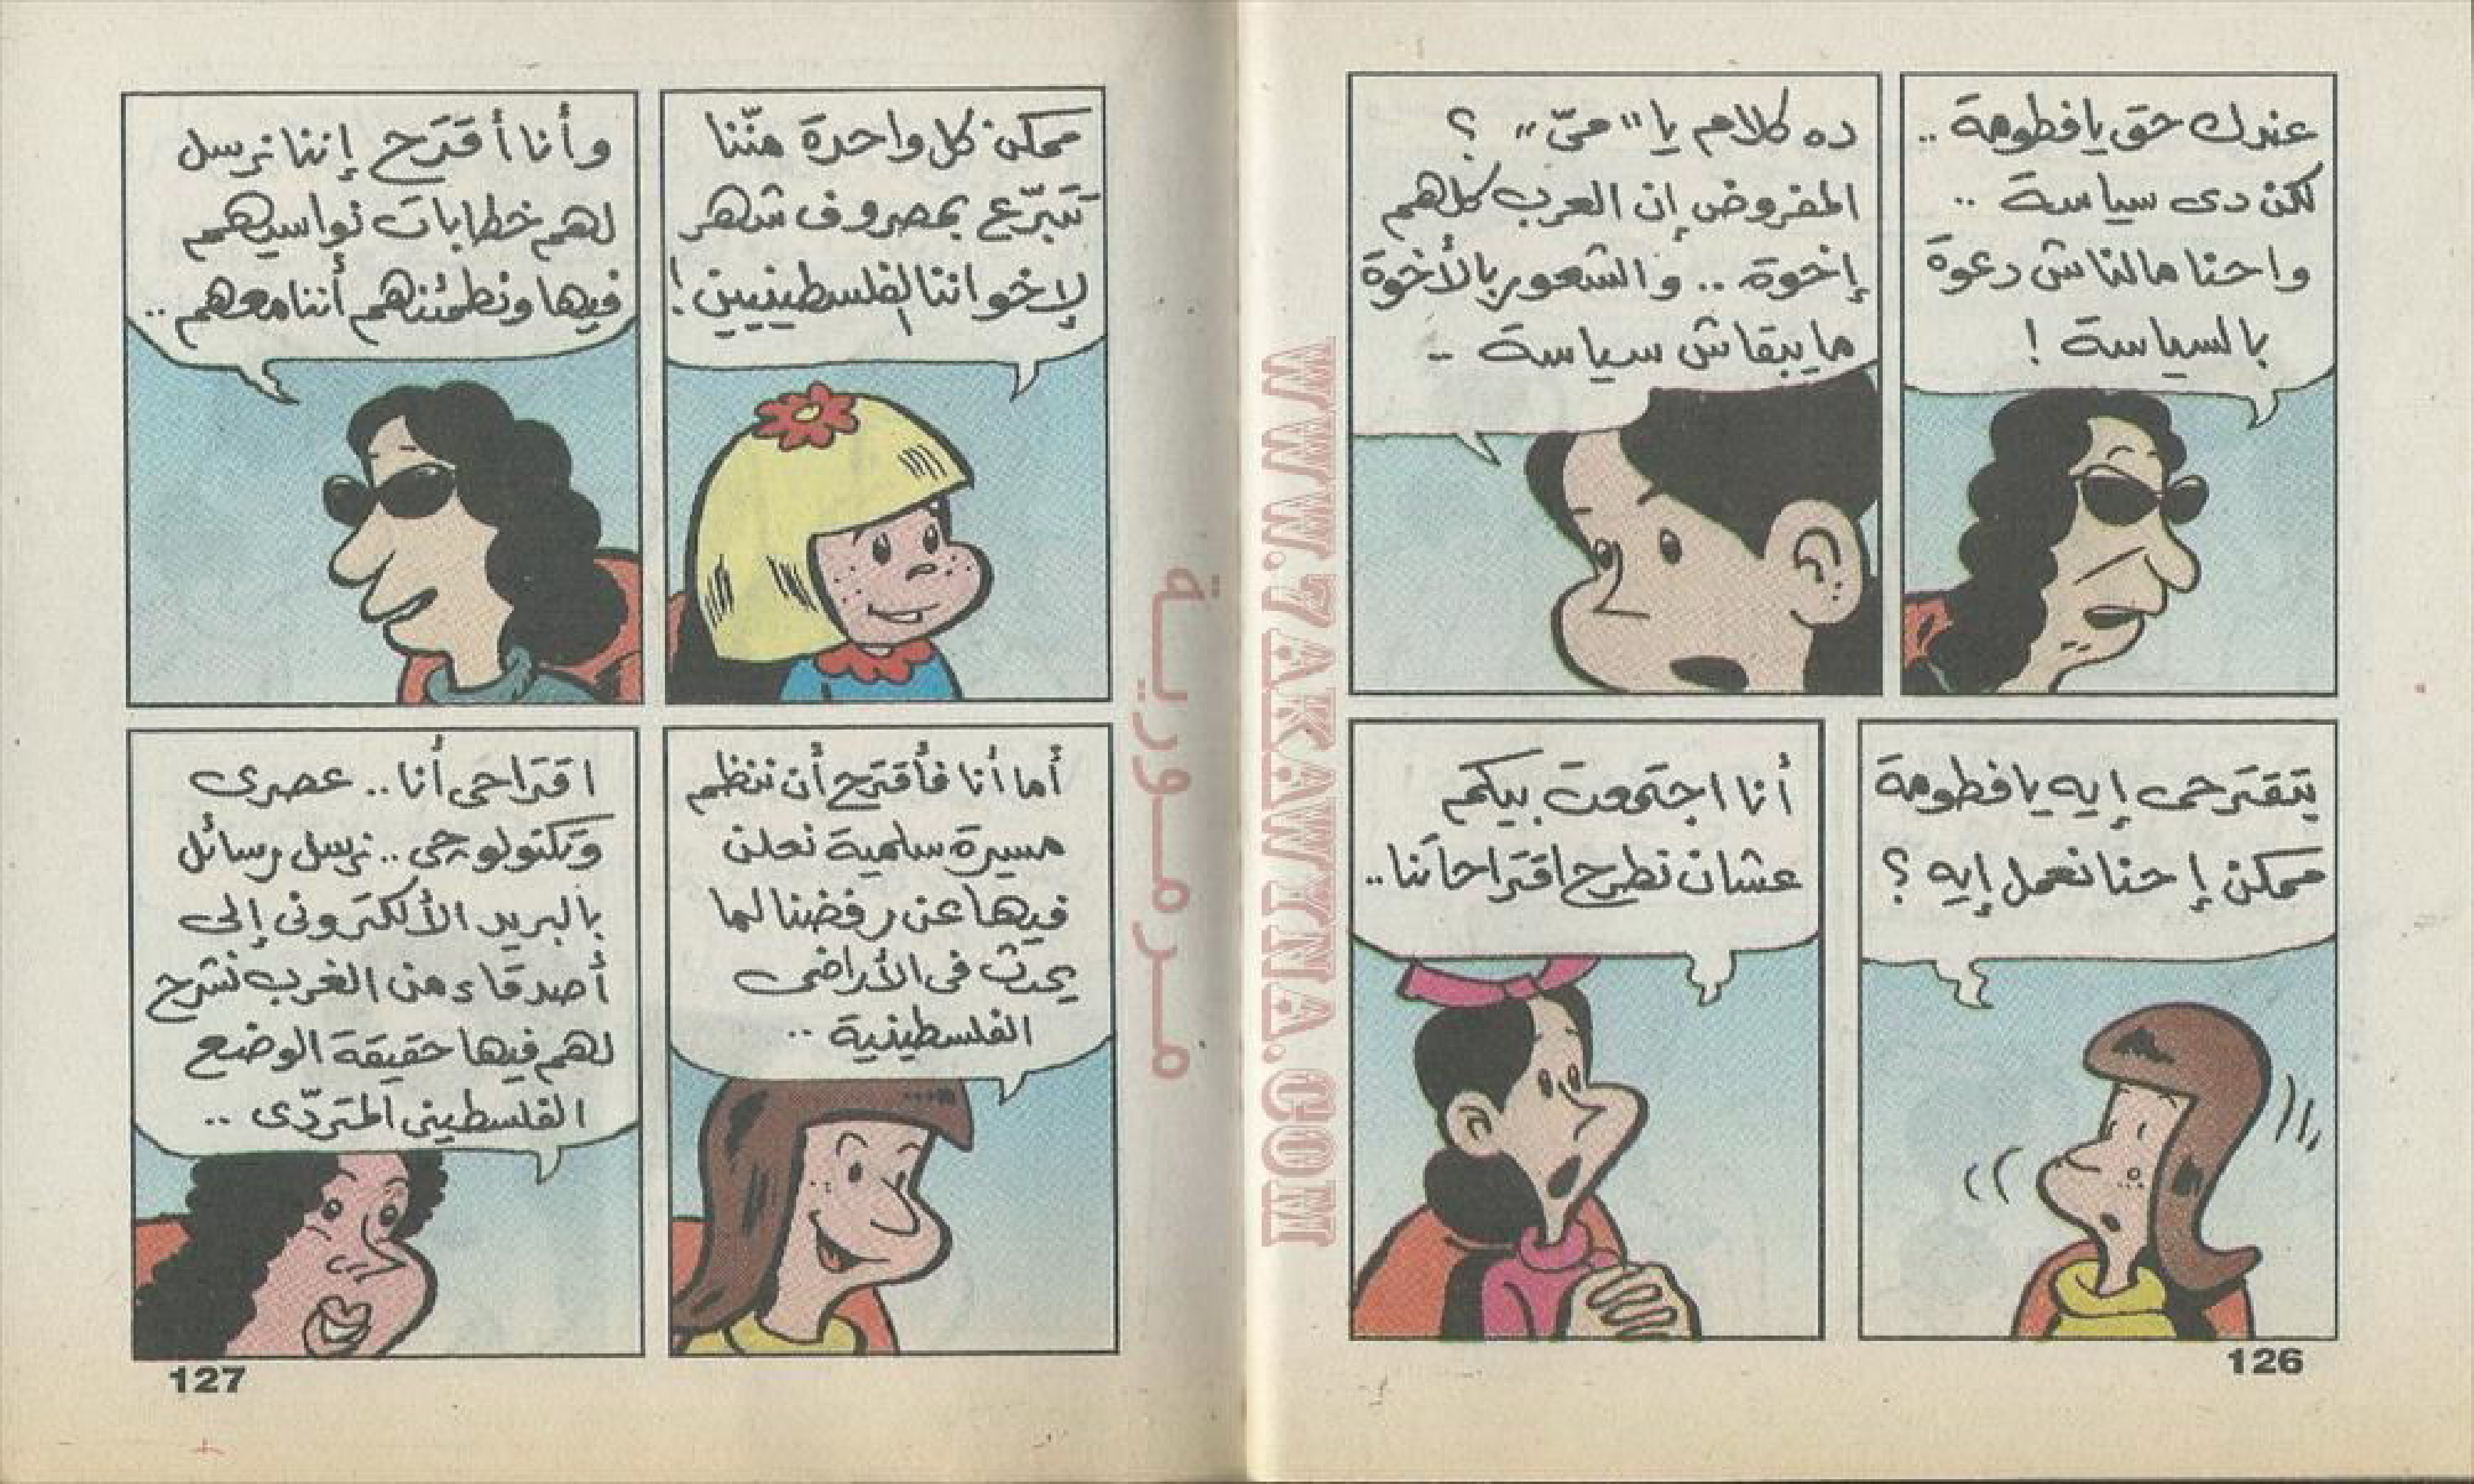 عندك حق يا فطومة ..
لكن دى سياسة ..
واحنا مالناش دعوة
بالسياسة !
ده كلام يا "مىّ" ؟
المفروض إن العرب كلهم
إخوة .. والشعور بالأخوة
ما يبقاش سياسة ..
بتقترحى إيه يا فطومة
ممكن إحنا نعمل إيه ؟
أنا اجتمعت بيكم
عشان نطرح اقتراحاتنا ..
126
WWW.7AKAWYNA.COM
مرمورية
ممكن كل واحدة منّنا
تتبرّع بمصروف شهر
لإخواننا الفلسطينيين !
وأنا أقترح إننا نرسل
لهم خطابات نواسيهم
فيها ونطمئنهم أننا معهم ..
أما أنا فأقترح أن ننظم
مسيرة سلمية نعلن
فيها عن رفضنا لما
يحدث فى الأراضى
الفلسطينية ..
اقتراحى أنا .. عصرى
وتكنولوجى .. نرسل رسائل
بالبريد الألكترونى إلى
أصدقاء من الغرب نشرح
لهم فيها حقيقة الوضع
الفلسطينى المتردّى ..
127